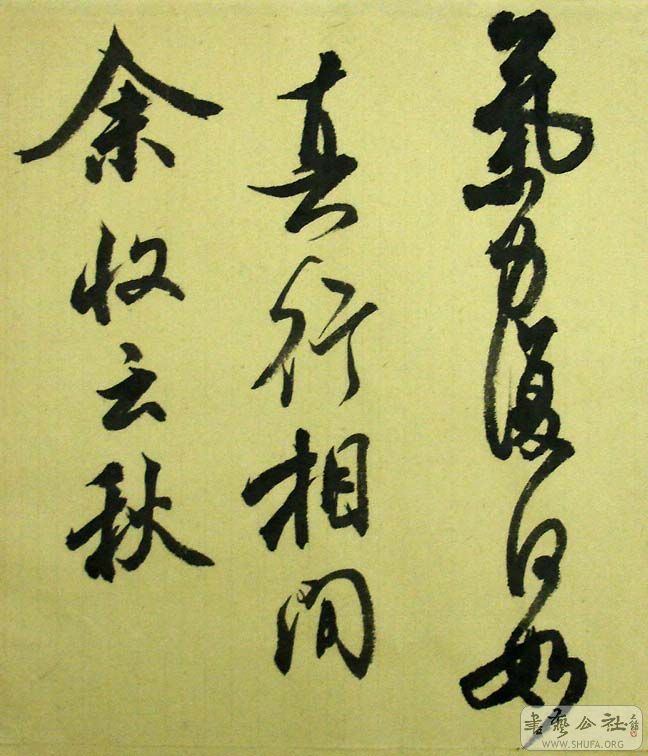 氣力復何如
真行相間
余收云秋
書藝公社
WWW.SHUFA.ORG